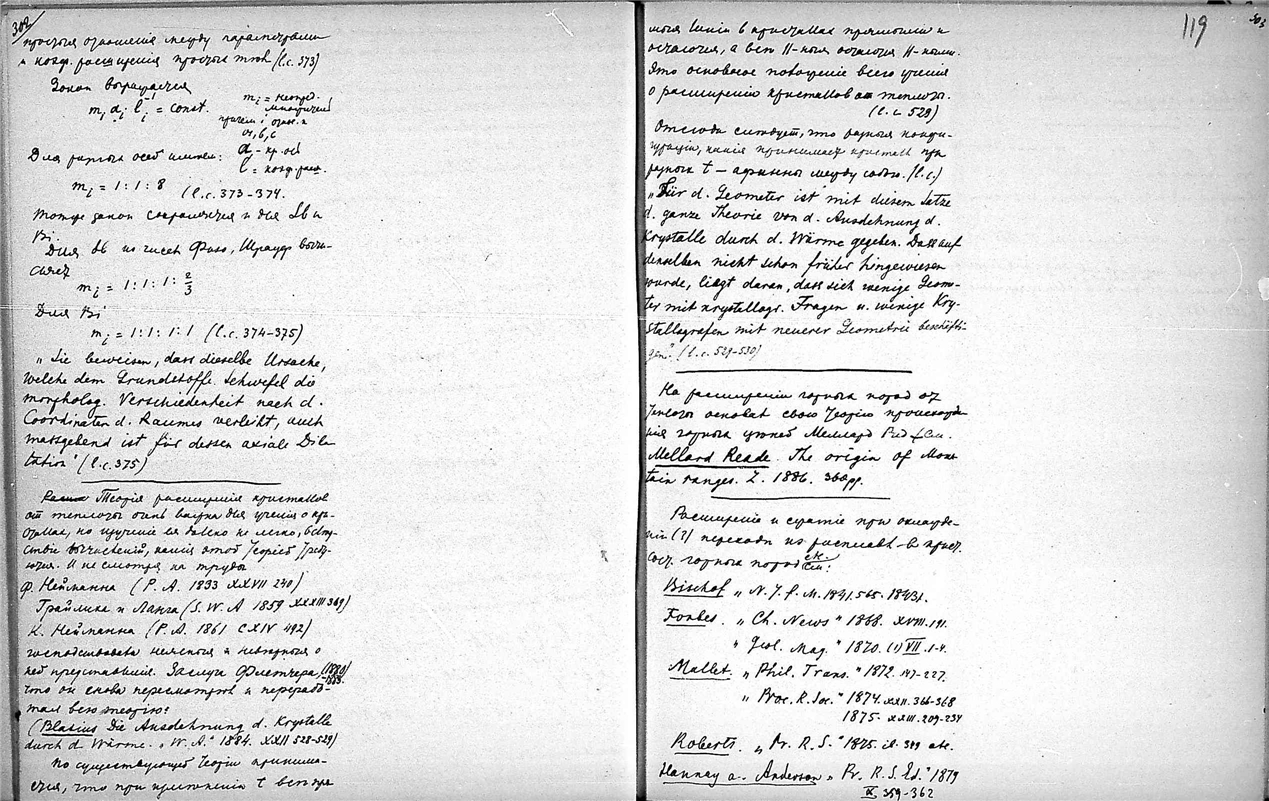 302
простыя отношенiя между параметрами
и коэф. расширенiя простых тѣл (l.c. 373)
Закон выражается
m_i α_i l_i^-1 = const.
m_i = неопред.
причем i относ. к
a, b, c
α_i - кр. ос
l = коэф. расш.
Для разных осей имеем:
m_i = 1:1:8 (l.c. 373-374.
Тот же закон сохраняется и для Sb и
Bi
Для Sb из чисел Физо, Шрауф вычи-
сляет
m_i = 1:1:1:2/3
Для Bi
m_i = 1:1:1:1 (l.c. 374-375)
„Sie beweisen, dass dieselbe Ursache,
welche dem Grundstoffe Schwefel die
morpholog. Verschiedenheit nach d.
Coordinaten d. Raumes verleiht, auch
massgebend ist für dessen axiale Dila-
tation" (l.c. 375)
Теорiя расширенiя кристаллов
от теплоты очень важна для ученiя о кри-
сталлах, но изученiе ея далеко не легко, вслѣд-
ствiе вычисленiй, какiя этой теорiей требу-
ются. И не смотря на труды
Ф. Неймана (P. A. 1833 XXVII 240)
Грайлиха и Ланга (S. W. A 1859 XXXIII 369)
К. Неймана (P. A. 1861 CXIV 492)
господствовали неясныя и невѣрныя о
ней представленiя. Заслуга Флетчера, (1880)
-1883.
что он снова пересмотрѣл и перерабо-
тал всю теорiю:
(Blasius Die Ausdehnung d. Krystalle
durch d. Wärme. „W. A." 1884. XXII 528-529)
По существующей теорiи принима-
ется, что при измѣненiи t всѣ пря-
119
303
мыя линiи в кристаллах прямыми и
остаются, а всѣ ||-ныя остаются ||-ными.
Это основное положенiе всего ученiя
о расширенiи кристаллов от теплоты.
(l.c. 529)
Отсюда слѣдует, что разныя конфи-
гурацiи, какiя принимает кристалл при
разных t — афинны между собою. (l.c.)
„Für d. Geometer ist mit diesem Satze
d. ganze Theorie von d. Ausdehnung d.
Krystalle durch d. Wärme gegeben. Dass auf
denselben nicht schon früher hingewiesen
wurde, liegt daran, dass sich wenige Geome-
ter mit krystallogr. Fragen u. wenige Kry-
stallografen mit neuerer Geometrie beschäfti-
gen". (l.c. 529-530)
На расширенiи горных пород от
теплоты основал свою теорiю происхожде-
нiя горных цѣпей Меллард Рид
Mellard Reade. The origin of Moun-
tain ranges. L. 1886. 360pp.
Расширенiе и сжатiе при охлажде-
нiи (?) перехода из расплавл-в крист.
сост. горных пород см.:
Bischof „N. J. f. M. 1841. 565. 1843
Forbes. „Ch. News" 1868. XVIII. 191.
„Geol. Mag." 1870. (1) VII. 1-4.
Mallet. „Phil. Trans." 1872. 147-227.
„Proc. R. Soc." 1874. XXII. 366-368
1875. XXIII. 209-234
Roberts. „Pr. R. S." 1875.
Hannay a. Anderson „Pr. R. S. Ed." 1879
X 359-362